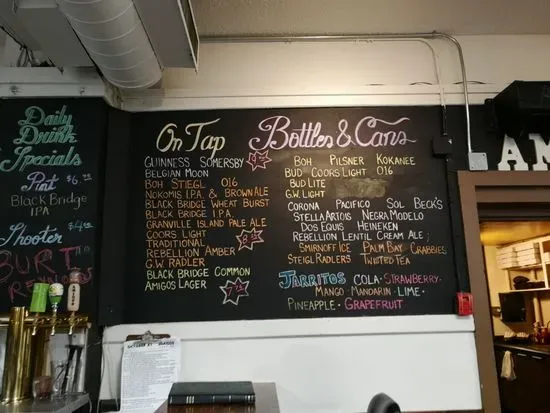 Daily
Drink
Specials
Pint
Black Bridge
IPA
Shooter
BURT
On Tap
GUINNESS SOMERSBY
BELGIAN MOON
BOH STIEGL O16
NOKOMIS I.P.A & BROWN ALE
BLACK BRIDGE WHEAT BURST
BLACK BRIDGE I.P.A.
GRANVILLE ISLAND PALE ALE
COORS LIGHT
TRADITIONAL
REBELLION AMBER
G.W RADLER
BLACK BRIDGE COMMON
AMIGOS LAGER
Bottles & Cans
BOH PILSNER KOKANEE
BUD COORS LIGHT O16
BUD LITE
G.W. LIGHT
CORONA PACIFICO SOL BECK'S
STELLA ARTOIS NEGRA MODELO
DOS EQUIS HEINEKEN
REBELLION LENTIL CREAM ALE
SMIRNOFF ICE PALM BAY CRABBIES
STEIGL RADLERS TWISTED TEA
JARRITOS COLA · STRAWBERRY
MANGO · MANDARIN · LIME ·
PINEAPPLE · GRAPEFRUIT
AM